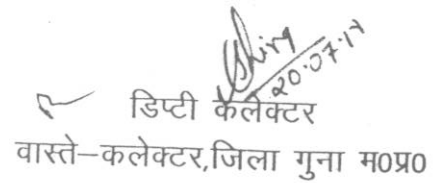 20.07.17
डिप्टी कलेक्टर
वास्ते–कलेक्टर,जिला गुना म0प्र0